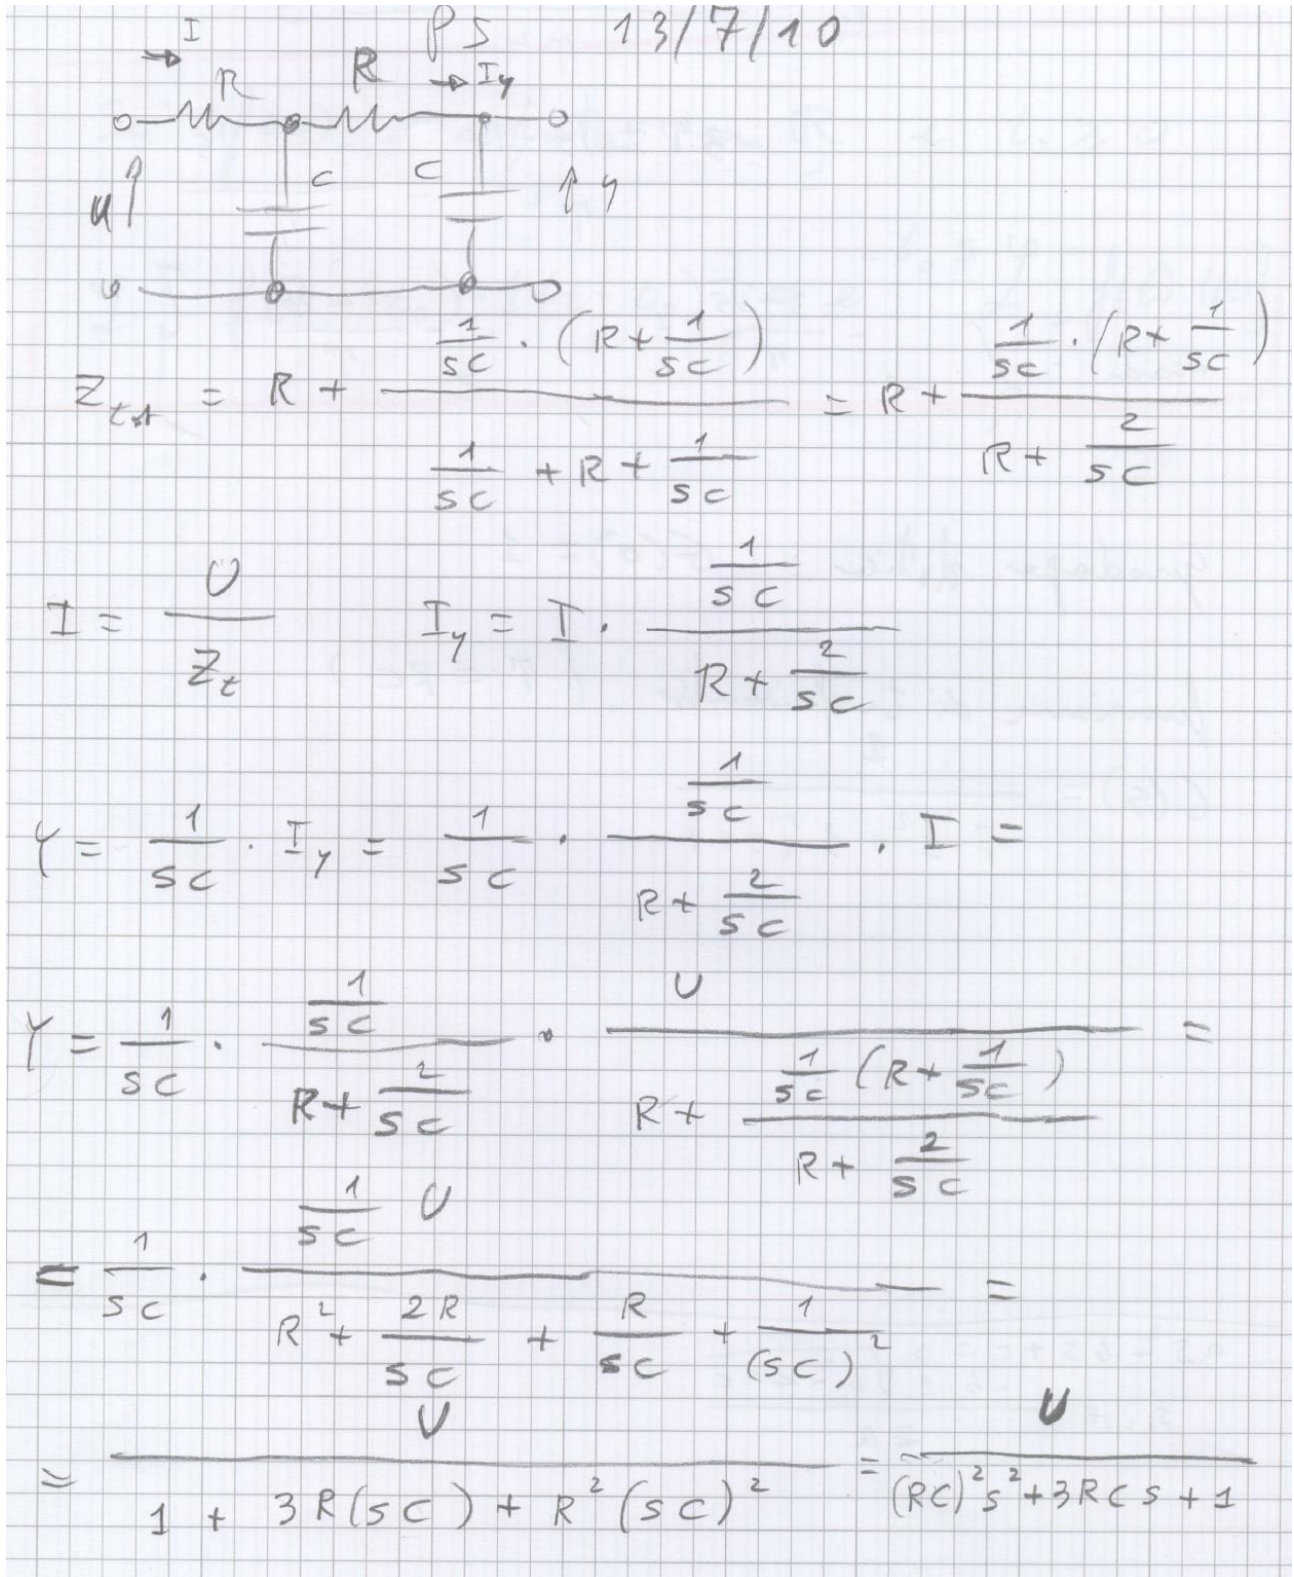 PS 13/7/10
I
R R I_y
C C
u y
Z_tot = R + (1/sC · (R + 1/sC)) / (1/sC + R + 1/sC) = R + (1/sC · (R + 1/sC)) / (R + 2/sC)
I = U / Z_t I_y = I · (1/sC) / (R + 2/sC)
Y = 1/sC · I_y = 1/sC · (1/sC) / (R + 2/sC) · I =
Y = 1/sC · (1/sC) / (R + 2/sC) · U / (R + (1/sC (R + 1/sC)) / (R + 2/sC)) =
= 1/sC · (1/sC U) / (R² + 2R/sC + R/sC + 1/(sC)²) =
= U / (1 + 3R(sC) + R²(sC)²) = U / ((RC)²s² + 3RCs + 1)